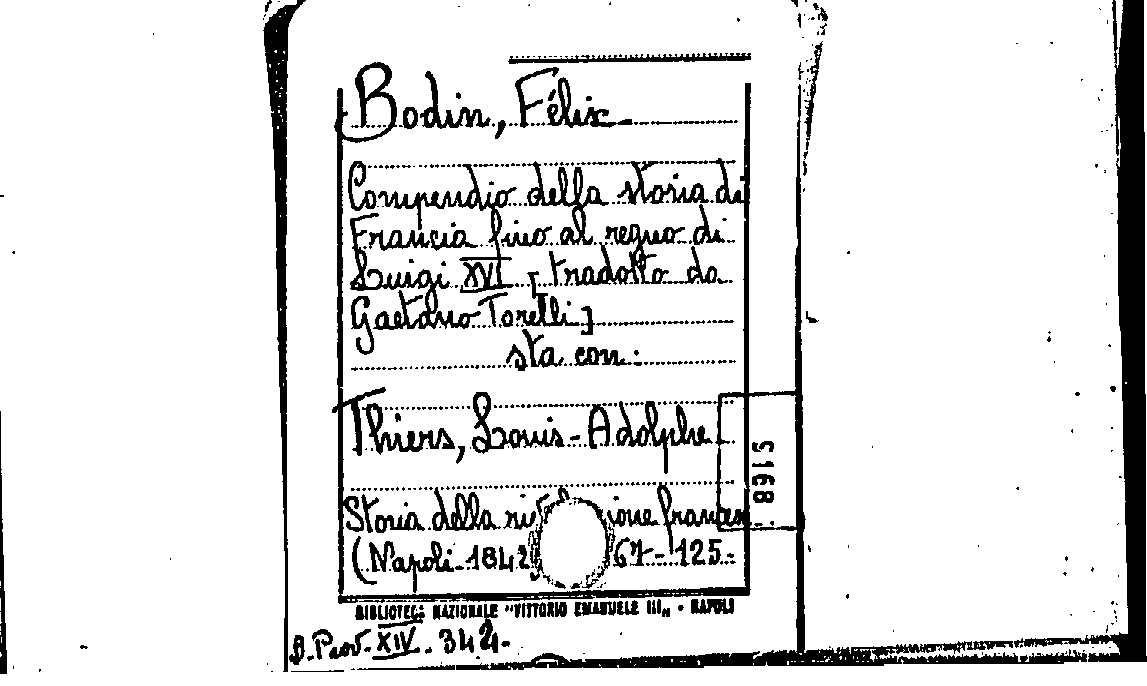 Bodin, Félix
Compendio della storia di
Francia fino al regno di
Luigi XVI [tradotto da
Gaetano Torelli]
sta con:
Thiers, Louis-Adolphe
Storia della francese
(Napoli-1842 67-125-
BIBLIOTECA NAZIONALE "VITTORIO EMANUELE III" - NAPOLI
B. Prov. XIV. 342.
5168